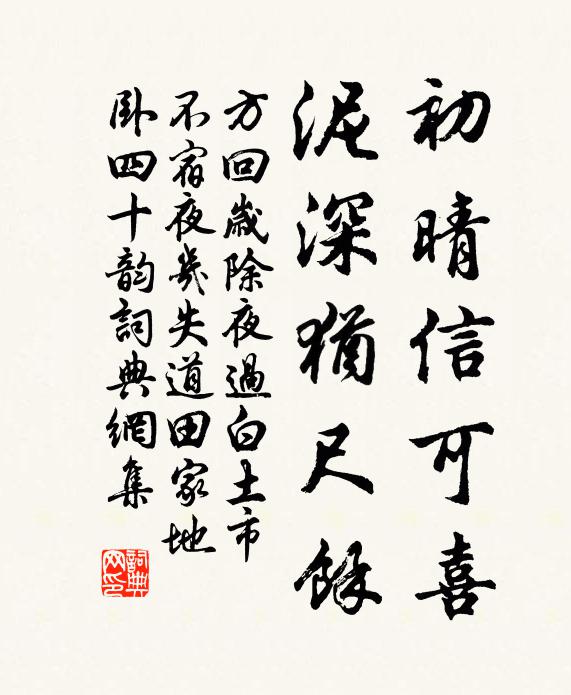 初晴信可喜
泥深猶尺餘
方回歲除夜過白土市
不宿夜幾失道田家地
臥四十韵詞典網集
詞典網印